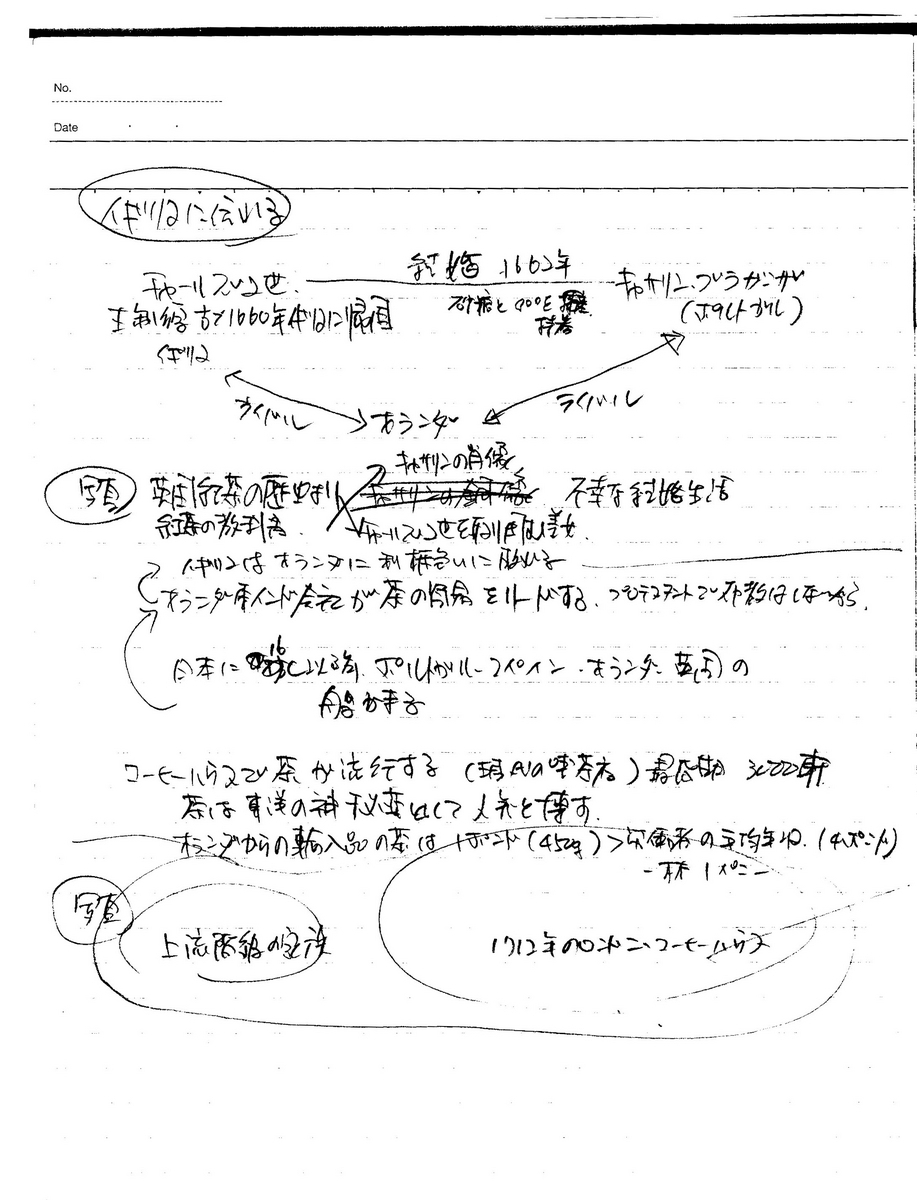 No.
Date
イギリスに伝わる
結婚 1662年
チャールズ2世
キャサリン・ブラガンザ
王制復古で1660年イギリスに帰国
砂糖と
持参
(ポルトガル)
イギリス
ライバル
ライバル
オランダ
キャサリンの肖像
写真
英国紅茶の歴史より
不幸な結婚生活
紅茶の教科書
チャールズ2世を取り囲む美女
イギリスはオランダに利権争いに
オランダ東インド会社が茶の貿易をリードする、プロテスタントで布教はしないから
日本に 16 以前、ポルトガル・スペイン・オランダ・英国の
船が来る
コーヒーハウスで茶が流行する (現代の喫茶店) 最盛期 3000軒
茶は東洋の神秘薬として人気を博す
オランダからの輸入品の茶は1ポンド(450g)>労働者の平均年収(4ポンド)
一杯1ペニー
写真
上流階級の家族
1712年のロンドン・コーヒーハウス